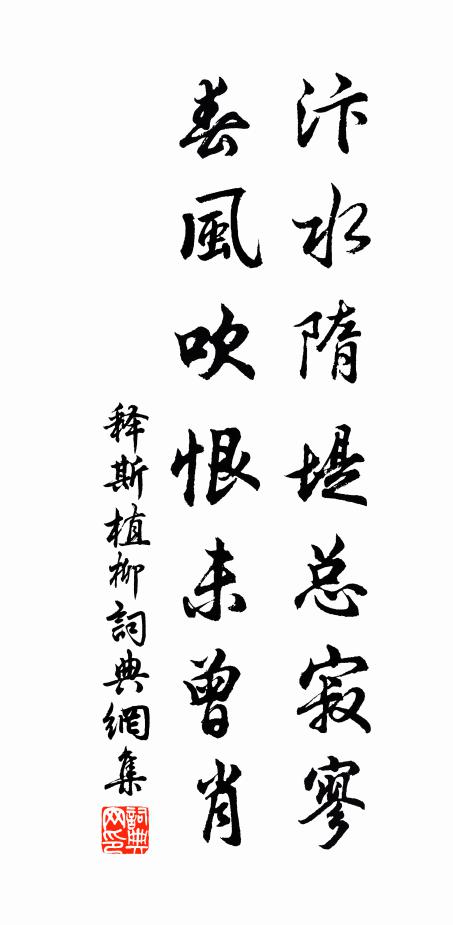 汴水隋堤总寂寥
春風吹恨未曾肖
释斯植柳詞典網集
詞典网印